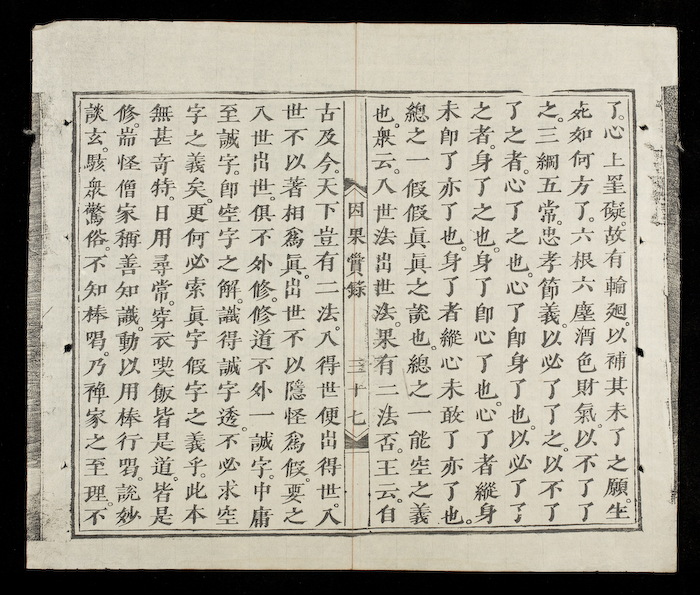 了。心上罣礙。故有輪廻。以補其未了之願。生
死如何方了。六根六塵。酒色財氣。以不了了
之。三綱五常。忠孝節義。以必了了之。以不了
了之者。心了之也。心了卽身了也。以必了了
之者。身了之也。身了卽心了也。心了者。縱身
未卽了。亦了也。身了者。縱心未敢了。亦了也。
總之一假假眞眞之說也。總之一能空之義
也。衆云。入世法。出世法。果有二法否。王云。自
因果實錄
三十七
古及今。天下豈有二法。入得世便出得世。入
世不以著相爲眞。出世不以隱怪爲假。要之
入世出世。俱不外修。修道不外一誠字。中庸
至誠字。卽空字之解。識得誠字透。不必求空
字之義矣。更何必索眞字假字之義乎。此本
無甚奇特。日用尋常。穿衣喫飯。皆是道。皆是
修。耑怪僧家稱善知識。動以用棒行喝。說妙
談玄。駭衆驚俗。不知棒喝。乃禪家之至理。不